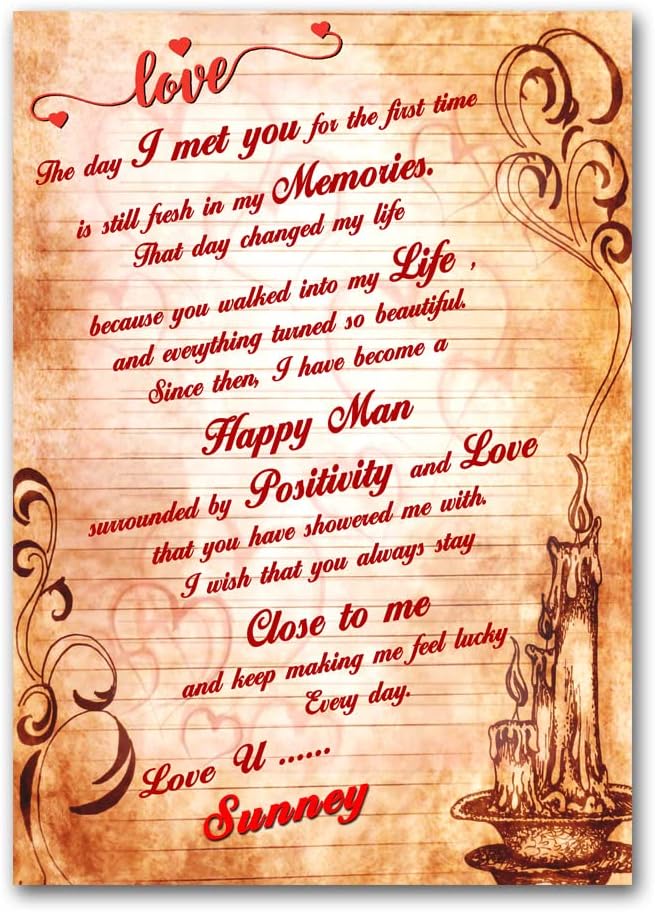 love
The day I met you for the first time
is still fresh in my Memories.
That day changed my life
because you walked into my Life ,
and everything turned so beautiful.
Since then, I have become a
Happy Man
surrounded by Positivity and Love
that you have showered me with.
I wish that you always stay
Close to me
and keep making me feel lucky
Every day.
Love U ......
Sunney